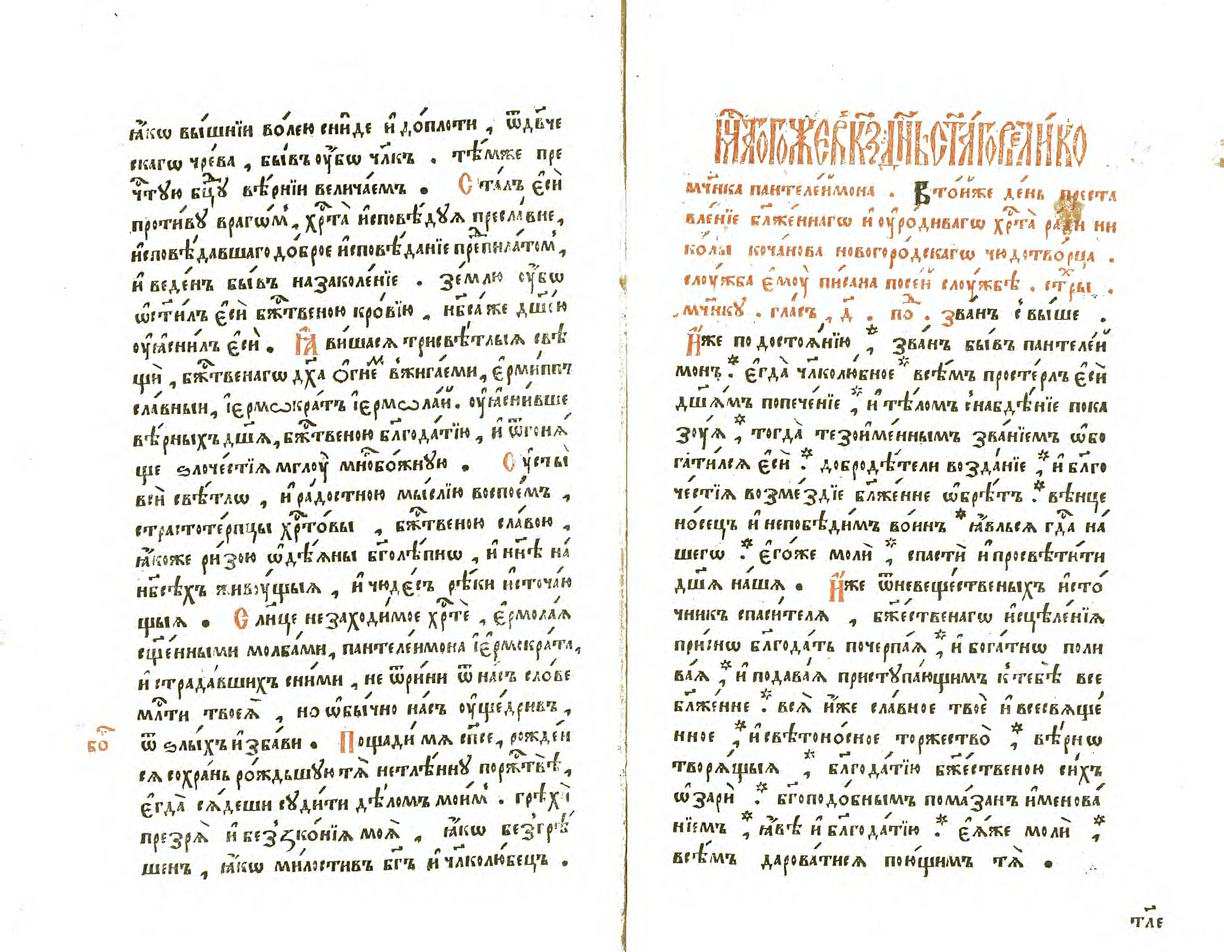 ꙗ҆́кѡ вы́шнїи во́лею сни́де и҆ до́плоти , ѿдв҃че
скагѡ чре́ва , бы́въ ᲂу҆́бѡ чл҃къ . тѣ́мже пре
чⷭ҇тую бцⷣу вѣ́рнїи велича́емъ . Ста́лъ є҆сѝ
проти́вꙋ врагѡ́мъ , хрⷭ҇та̀ и҆сповѣ́дуѧ пресла́вне ,
и҆сповѣ́давшаго до́брое и҆сповѣ́данїе препила́томъ ,
и҆ веде́нъ бы́въ назаколе́нїе . зе́млю ᲂу҆́бѡ
ѡ҆ст҃и́лъ є҆сѝ бж҃́твеною кро́вїю , нб҃са́ же дш҃е́ю
ᲂу҆ꙗсни́лъ є҆сѝ . Ꙗ҆ви́шасѧ трисвѣ́тлыѧ свѣ
щѝ , бж҃́твенагѡ дх҃а ѻ҆гне́мъ вжига́еми , є҆рми́ппъ
сла́вныи , і҆ермѡкра́тъ і҆ермѡла́й . ᲂу҆ꙗсни́вше
вѣ́рныхъ дш҃а̀ , бж҃́твеною блгⷣа́тїю , и҆ ѿгонѧ
ще ѕлоче́стїѧ мглоу̀ многобо́жную . Сусты̀
всѝ свѣ́тлѡ , и҆ ра́достною мы́слїю воспое́мъ ,
страстоте́рпцы хрⷭ҇то́вы , бж҃́твеною сла́вою ,
ꙗ҆́коже ри́зою ѡ҆дѣ́ѧны бг҃олѣ́пнѡ , и҆ ны́нѣ на
нб҃сѣ́хъ живу́щыѧ , и҆ чюде́съ рѣ́ки и҆сточа́ю
щыѧ . Сл҃нце незаходи́мое хрⷭ҇тѐ , є҆рмола́ѧ
сщ҃е́нными молба́ми , пантелеи́мона і҆ермокра́та ,
и҆ страда́вшихъ сни́ми , не ѿри́ни ѿ на́съ сло́ве
млⷭ҇ти твоеѧ̀ , но ѡ҆бы́чно на́съ ᲂу҆ще́дривъ ,
бо҃
ѿ ѕлы́хъ и҆зба́ви . Пощади́ мѧ сп҃се , рожде́н
сѧ сохра́нь ро́ждьшую тѧ̀ нетлѣ́нну порⷤтвѣ̀ ,
є҆гда̀ сѧ́деши суди́ти дѣло́мъ мои́мъ . грѣхѝ
презрѧ̀ и҆ беззако́нїѧ моѧ̀ , ꙗ҆́кѡ безгрѣ́
шенъ , ꙗ҆́кѡ ми́лостивъ бг҃ъ и҆ чл҃колю́бецъ .
Мⷭ҇ца того́же въ к҃з де́нь ст҃а́го вели́ко
мч҃нка пантелеи́мона . Втои́же де́нь преста
вле́нїе бл҃же́ннагѡ и҆ оу҆ро́дивагѡ хрⷭ҇та̀ ра́ди ни
ко́лы коча́нова новогоро́дскагѡ чюдотво́рца .
слоу́жба є҆моу̀ пи́сана посе́й слоу́жбѣ . стⷯры .
мч҃нкꙋ . гла́съ , д҃ . поⷣ . зва́нъ свы́ше .
И҆́же по достоѧ́нїю * зва́нъ бы́въ пантелеи́
монъ * є҆гда̀ чл҃колю́бное * всѣ́мъ просте́рлъ є҆сѝ
дш҃а́мъ попече́нїе * и҆ тѣло́мъ снабдѣ́нїе пока
зоу́ѧ * тогда̀ тезоиме́ннымъ зва́нїемъ ѡ҆бо
гати́лсѧ є҆сѝ * добродѣ́тели возда́нїе * и҆ бл҃го
че́стїѧ возме́здїе бл҃же́нне ѡ҆брѣ́тъ * вѣнце
но́сецъ и҆ непобѣди́мъ во́инъ * ꙗ҆́вльсѧ гдⷭ҇а на́
шегѡ * є҆го́же молѝ * спастѝ и҆ просвѣти́ти
дш҃а̀ на́шѧ . И҆́же ѿневеще́ственыхъ и҆сто́
чникъ спаси́телѧ , бж҃е́ственагѡ и҆сцѣле́нїѧ
при́снѡ блгⷣа́ть почерпа́ѧ * и҆ бога́тнѡ поли
ва́ѧ * и҆ подава́ѧ приступа́ющимъ к тебѣ̀ все
бл҃же́нне * всѧ̀ и҆́же сла́вное твоѐ и҆ всесвѧще́
нное * и҆ свѣтоно́сное торжество̀ * вѣ́рнѡ
творѧ́щыѧ * блгⷣа́тїю бж҃е́ственою си́хъ
ѡ҆зарѝ * бг҃оподо́бнымъ пома́занъ и҆менова́
нїемъ * ꙗ҆́вѣ и҆ блгⷣа́тїю * є҆ѧ́же молѝ *
всѣ́мъ дарова́тисѧ пою́щимъ тѧ̀ .
тл҃е